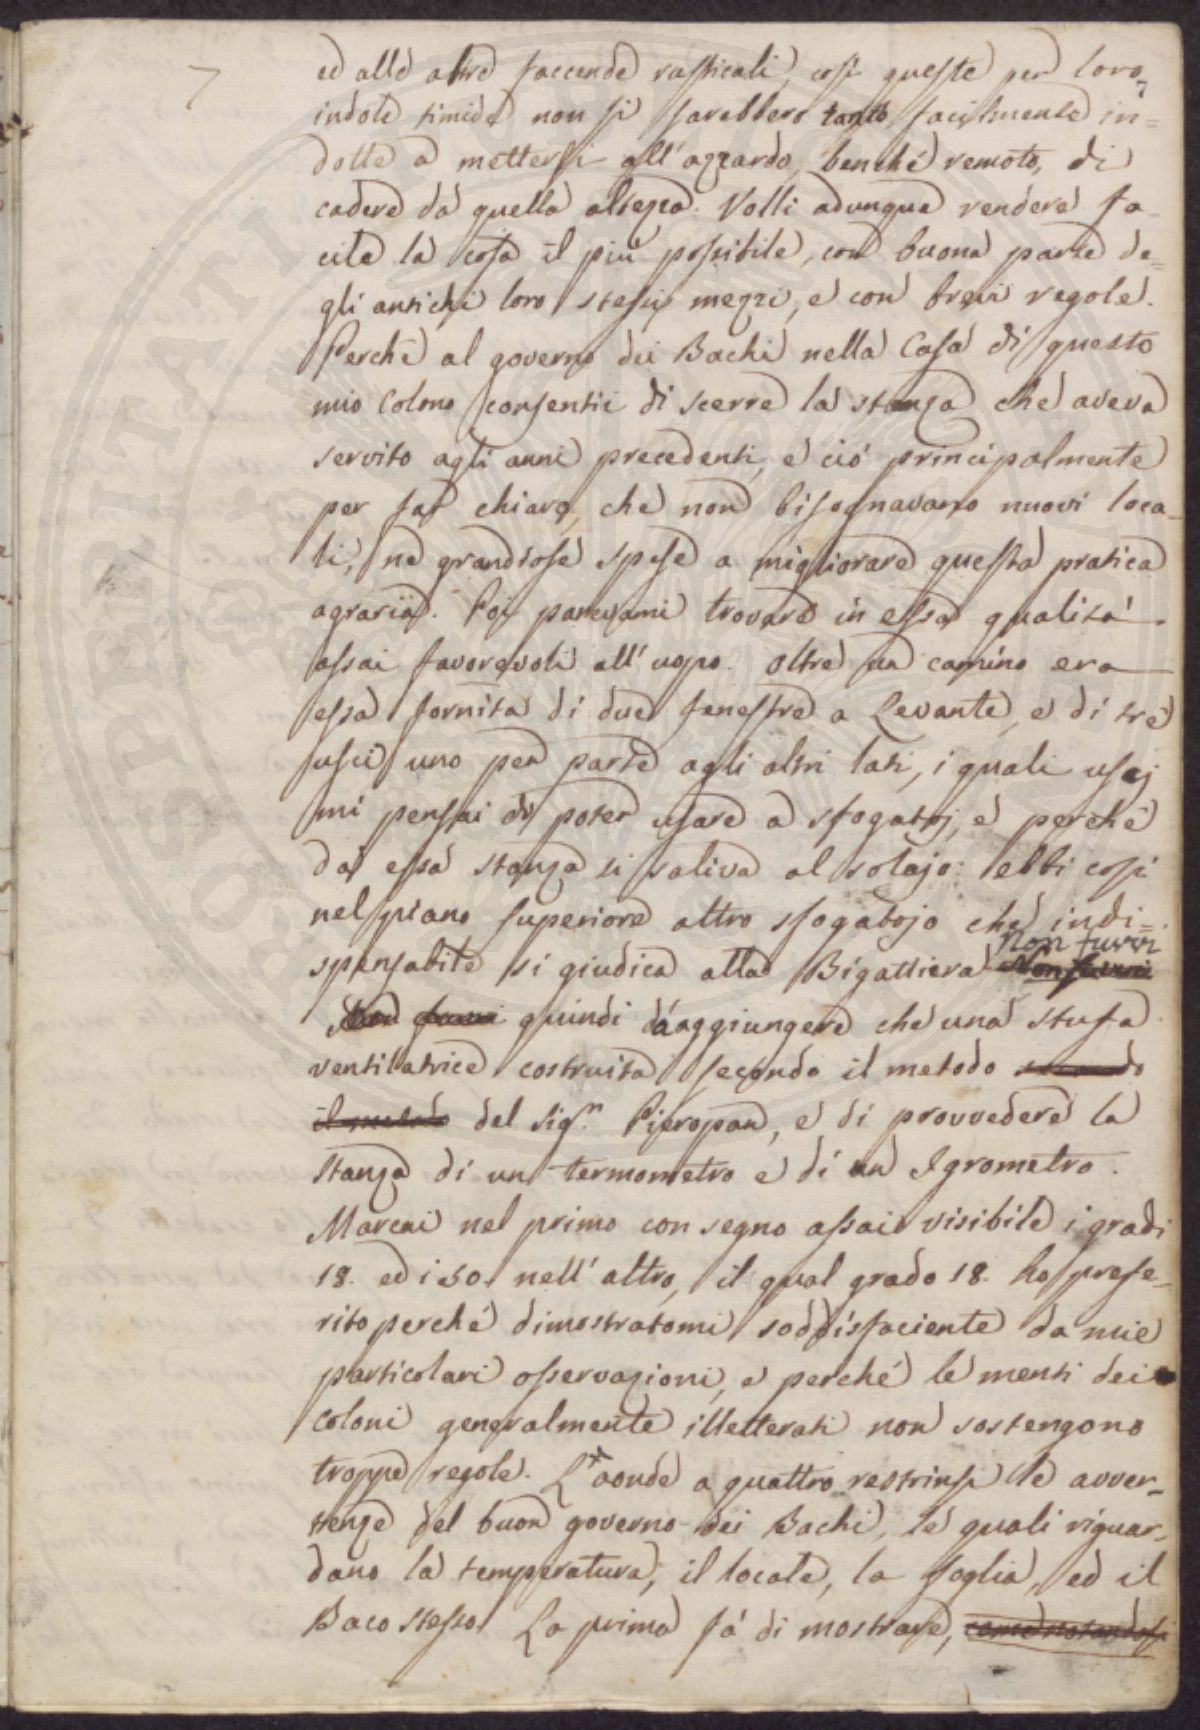 7
ed alle altre faccende rusticali, così queste per loro
7
indole timida non si sarebbero tanto facilmente in=
dotte a mettersi all'azzardo, benché remoto, di
cadere da quella altezza. Volli adunque rendere fa-
cile la cosa il più possibile, con buona parte de=
gli antichi loro stessi mezzi, e con brevi regole.
Perchè al governo dei Bachi nella Casa di questo
mio Colono consentii di scerre la stanza che aveva
servito agli anni precedenti, e ciò principalmente
per far chiaro, che non bisognavano nuovi loca-
li, ne grandiose spese a migliorare questa pratica
agraria. Poi parevami trovare in essa qualità
assai favorevoli all'uopo. Oltre un camino era
essa fornita di due fenestre a Levante, e di tre
usci, uno per parte agli altri lati, i quali uscj
mi pensai di poter usare a sfogatoj, e perché
da essa stanza si saliva al solajo: ebbi così
nel piano superiore altro sfogatojo che indi=
spensabile si giudica alla Bigattiera. Non furvi
quindi da aggiungere che una stufa
ventilatrice costruita secondo il metodo secondo
il metodo del Sig.r Pieropan, e di provvedere la
stanza di un termometro e di un Igrometro.
Marcai nel primo con segno assai visibile i gradi
18. ed i 50. nell'altro, il qual grado 18. ho prefe-
rito perché dimostratomi soddisfaciente da mie
particolari osservazioni, e perché le menti dei
coloni generalmente illetterati non sostengono
troppe regole. Laonde a quattro restrinsi le avver-
tenze del buon governo dei Bachi, le quali riguar-
dano la temperatura, il locale, la foglia, ed il
Baco stesso. La prima fà di mostrare,